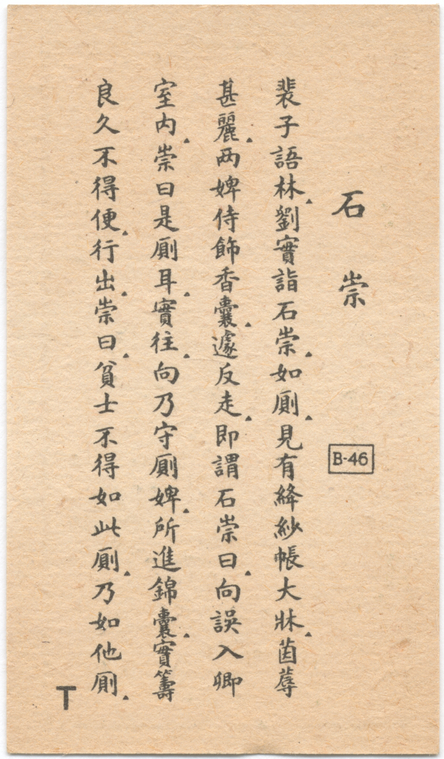 石崇
B-46
裴子語林▴劉實詣石崇▴如厠▴見有絳紗帳大牀▴茵蓐
甚麗▴两婢侍飾香囊▴遽反走▴即謂石崇曰▴向誤入卿
室内▴崇曰是厠耳▴實往▴向乃守厠婢▴所進錦囊▴實籌
良久不得便▴行出▴崇曰▴貧士不得如此厠▴乃如他厠▴
T